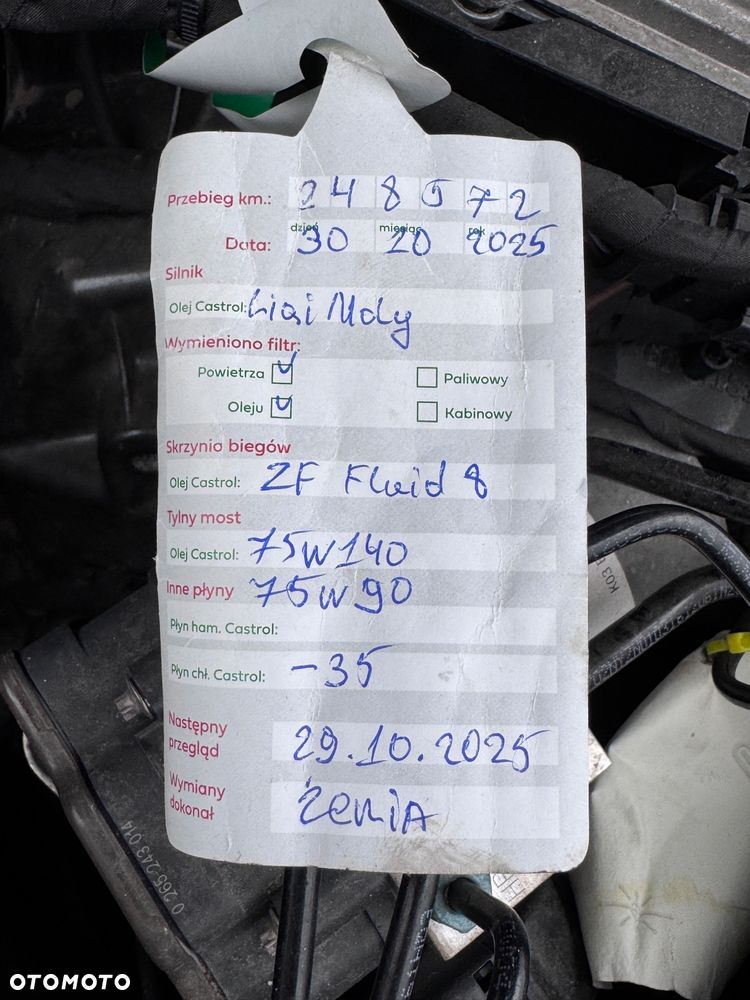 Przebieg km.: 248572
dzień miesiąc rok
Data: 30 10 2025
Silnik
Olej Castrol: Liqi Moly
Wymieniono filtr:
Powietrza Paliwowy
Oleju Kabinowy
Skrzynia biegów
Olej Castrol: ZF Fluid 8
Tylny most
Olej Castrol: 75W140
Inne płyny 75W90
Płyn ham. Castrol:
Płyn chł. Castrol: -35
Następny przegląd 29.10.2025
Wymiany dokonał
0 265 243 014
K03
OTOMOTO